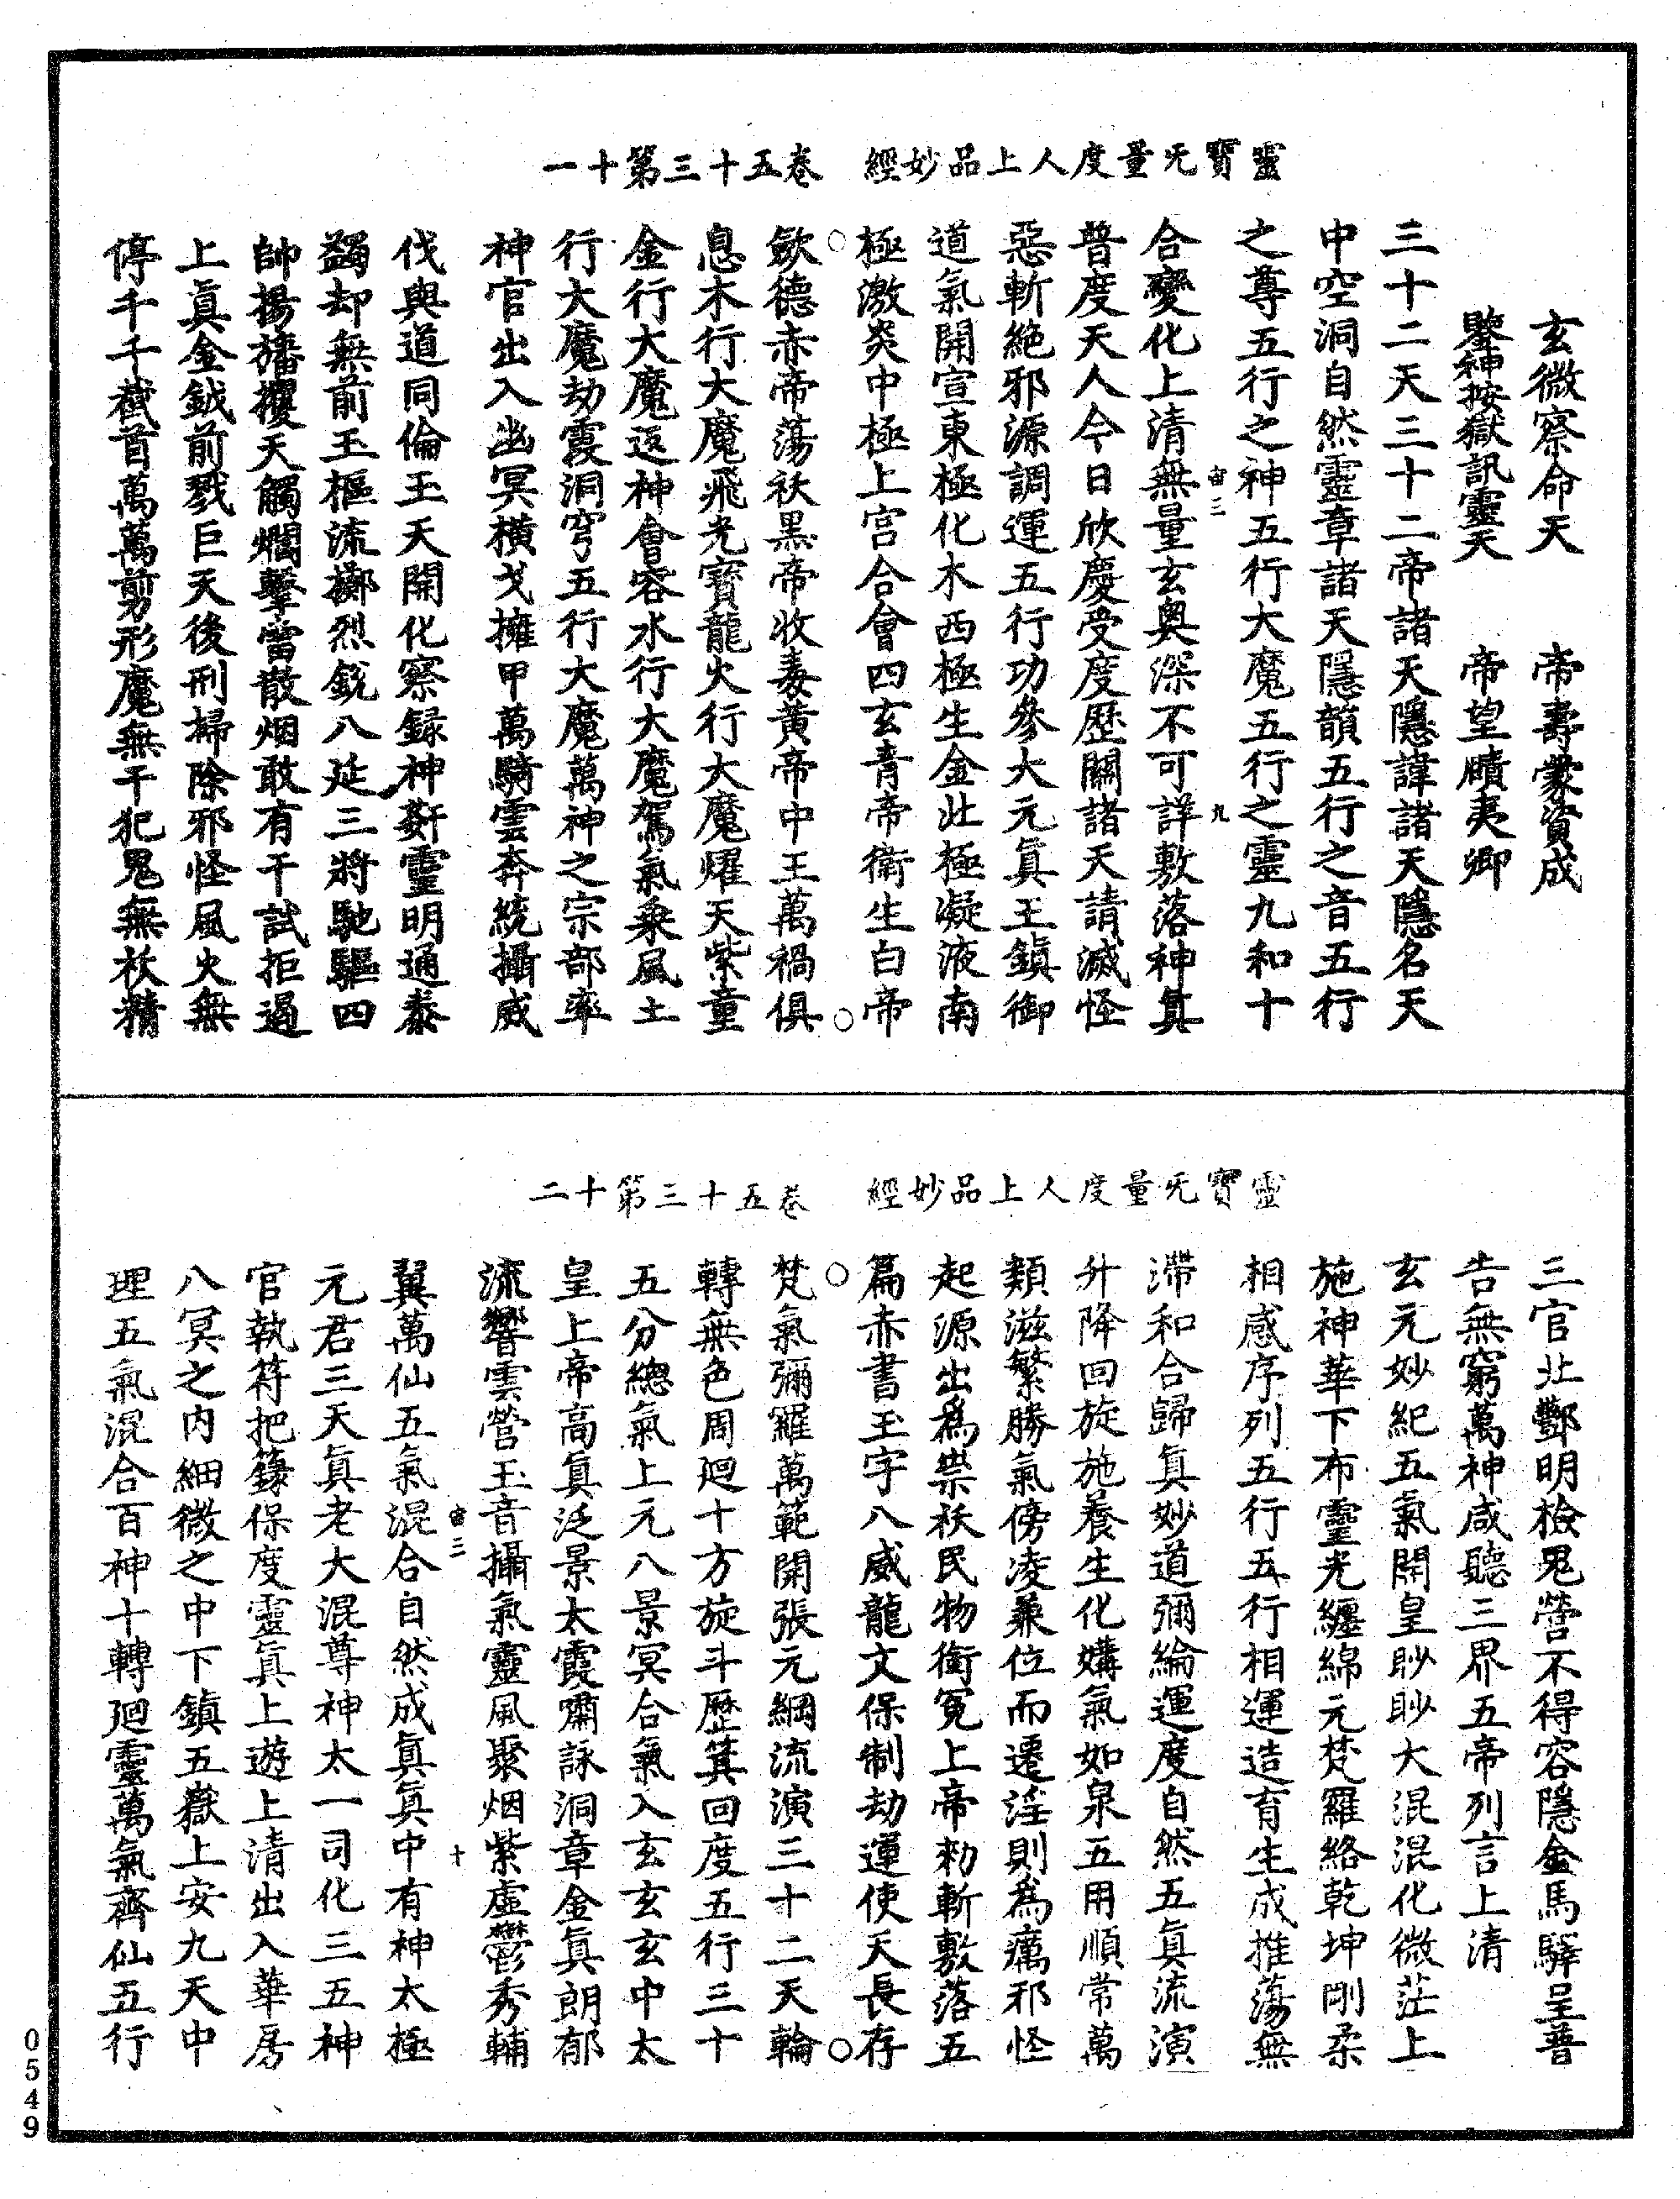 靈寶无量度人上品妙經　卷五十三第十一
玄微察命天　帝壽蒙資成
鑒神按獄訊靈天　帝望賾夷卿
三十二天三十二帝諸天隱諱諸天隱名天
中空洞自然靈章諸天隱韻五行之音五行
之尊五行之神五行大魔五行之靈九和十
宙三　九
合變化上清無量玄奧深不可詳敷落神真
普度天人今日欣慶受度歷關諸天請滅怪
惡斬絕邪源調運五行功參大元真王鎮御
道氣開宣東極化木西極生金北極凝液南
極激炎中極上宮合會四玄青帝衛生白帝
歛德赤帝蕩祅黑帝收毒黃帝中王萬禍俱
息木行大魔飛光寶龍火行大魔耀天紫童
金行大魔返神會容水行大魔駕氣乘風土
行大魔劫霞洞穹五行大魔萬神之宗部率
神官出入幽冥橫戈擁甲萬騎雲奔統攝威
伐與道同倫玉天開化察錄神姧靈明通泰
蠲却無前玉樞流擲烈銳八延三將馳驅四
帥揚旛攫天觸爛擊當散烟敢有干試拒遏
上真金鉞前戮巨天後刑掃除邪怪風火無
停千千截首萬萬剪形魔無干犯鬼無祅精
靈寶无量度人上品妙經　卷五十三第十二
三官北酆明檢鬼營不得容隱金馬驛呈普
告無窮萬神咸聽三界五帝列言上清
玄元妙紀五氣開皇眇眇大混混化微茫上
施神華下布靈光纏綿元梵羅絡乾坤剛柔
相感序列五行五行相運造育生成推蕩無
滯和合歸真妙道彌綸運度自然五真流演
升降回旋施養生化媾氣如泉五用順常萬
類滋繁勝氣傍凌兼位而遷淫則為癘邪怪
起源出為祟祅民物銜冤上帝勑斬敷落五
篇赤書玉字八威龍文保制劫運使天長存
梵氣彌羅萬範開張元綱流演三十二天輪
轉無色周迴十方旋斗歷箕回度五行三十
五分總氣上元八景冥合氣入玄玄玄中太
皇上帝高真泛景太霞嘯詠洞章金真朗郁
流響雲營玉音攝氣靈風聚烟紫虛鬱秀輔
宙三　十
翼萬仙五氣混合自然成真真中有神太極
元君三天真老大混尊神太一司化三五神
官執符把籙保度靈真上遊上清出入華房
八冥之内細微之中下鎮五嶽上安九天中
理五氣混合百神十轉迴靈萬氣齊仙五行
0549